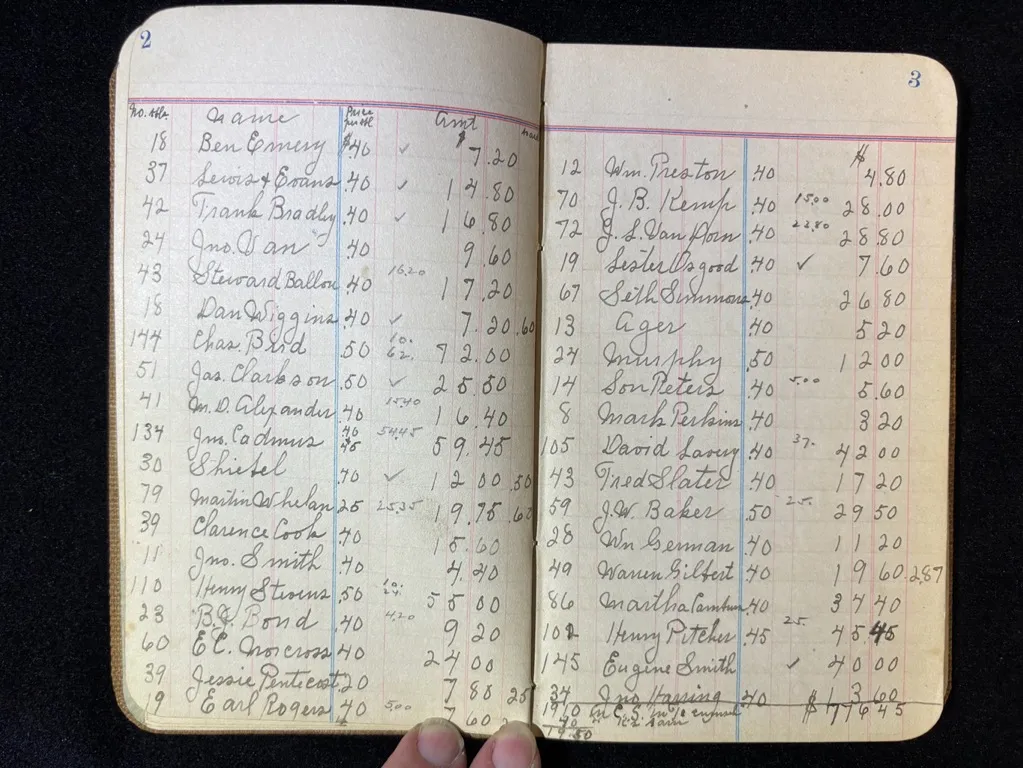 2
No. bbls name Price per bbl Amt
18 Ben Emery $.40 ✓ $7.20
37 Lewis & Evans .40 ✓ 14.80
42 Frank Bradley .40 ✓ 16.80
24 Jno. Van .40 9 60
43 Steward Ballon .40 16.20 17.20
18 Dan Wiggins .40 ✓ 7.20 .60
144 Chas. Bird .50 10. 62. 72.00
51 Jas. Clarkson .50 ✓ 25.50
41 M.D. Alexander .40 15.40 16.40
134 Jno. Cadmus .40 .45 54.45 59.45
30 Shiebel .40 ✓ 12 00 .50
79 Martin Whelan 25 25.35 19.75 .60
39 Clarence Cook .40 15.60
11 Jno. Smith .40 4.40
110 Henry Stevens .50 10. 24. 55 00
23 B.F. Bond .40 4.20 9 20
60 E.C. Norcross .40 24 00
39 Jessie Pentecost .20 7 80 25
19 Earl Rogers .40 5.00 7 60
3
12 Wm. Preston .40 $4.80
70 J. B. Kemp .40 15.00 28.00
72 J. L. Van Horn .40 23.80 28 80
19 Lester Osgood .40 ✓ 7 60
67 Seth Simmons .40 26 80
13 Ager .40 5 20
24 Murphy .50 12 00
14 Son Peters .40 5.00 5.60
8 Mark Perkins .40 3 20
105 David Lavery .40 37. 42 00
43 Fred Slater .40 17 20
59 J.W. Baker .50 25. 29 50
28 Wm German .40 11 20
49 Warren Gilbert .40 19 60 2.87
86 Martha Camburn .40 34 40
101 Henry Pitcher .45 25. 45.45
145 Eugene Smith ✓ 40 00
34 Jno. Harring .40 13 60
1970 $ 776 45